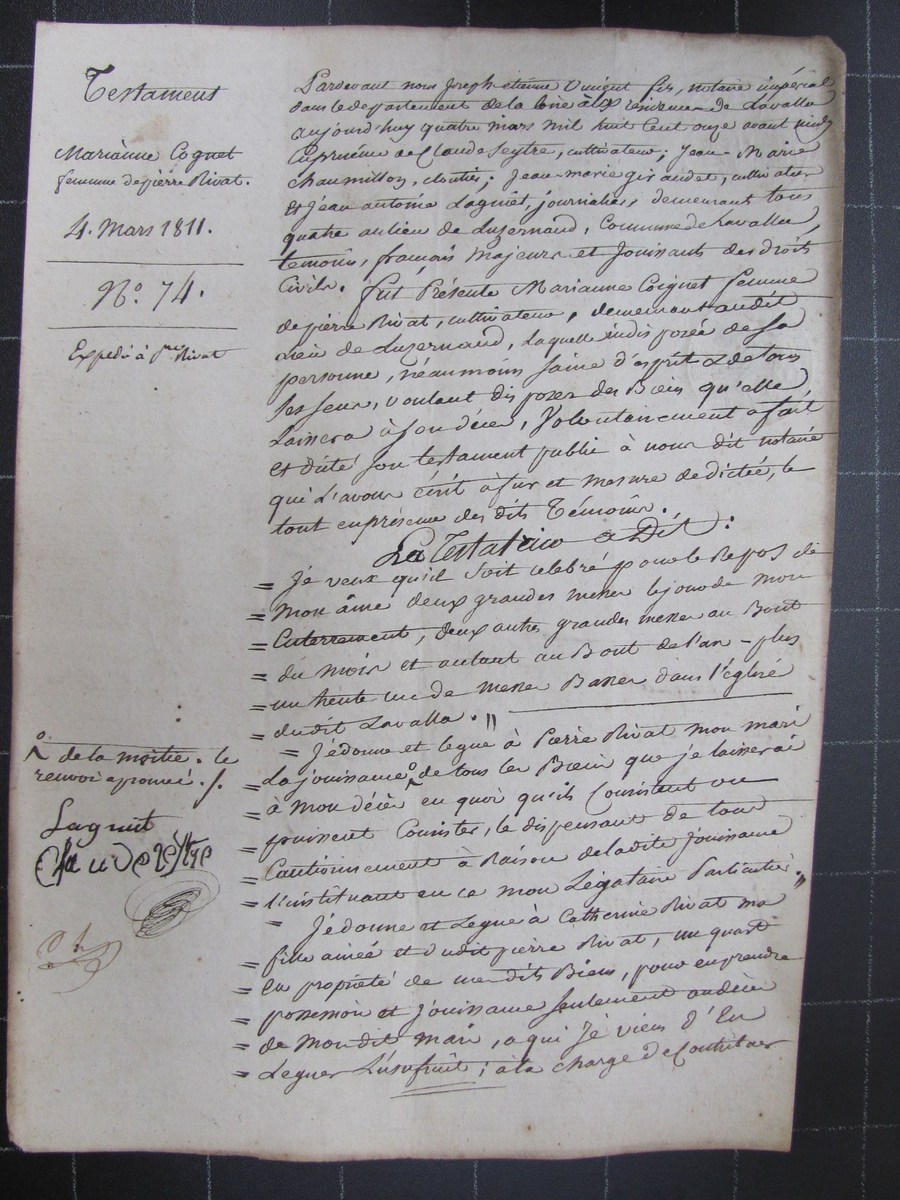 Testament
Marianne Cognet
femme de pierre Rivat.
4. Mars 1811.
N.o 74.
Expedié à pre Rivat
Pardevant nous Joseph-etienne fis, notaire impérial
dans le departement de la loire aux résidence de Lavalla
aujourd'huy quatre mars mil huit cent onze avant midy
Enprésence de Claude Seytre, cultivateur; Jean-Marie
chaumillon, cloutier; Jean-marie giraudet, cultivateur
et Jean antoine Lagniet, journaliers demeurant tous
quatre au lieu de Luzernaud, Commune de Lavalla,
temoins, français Majeurs et Jouissants des Droits
Civils. fut Présente Marianne Coignet femme
de pierre Rivat, cultivateur, demeurant audit
lieu de Luzernaud, Laquelle indisposée de sa
personne, néaumoins saine d'esprit & de tous
ses sens, voulant disposer des Biens qu'elle
Laissera à son décès, Volontairement a fait
et dicté son testament public à nous dit notaire
qui l'avons écrit à fur et mesure de dictée, le
tout en présence des dits Témoins.
La Testatrice a Dit:
= Je veux qu'il soit celebré pour le Repos de
= Mon âme deux grandes messes le jour de mon
= Enterrement, deux autres grandes messes au Bout
= du mois et autant au Bout de l'an - plus
= un trente un de messes Basses dans l'église
= dudit Lavalla. //
= Je donne et legue à Pierre Rivat mon mari
= La jouissance de tous les Biens que je laisserai
= à Mon décès en quoi qu'ils Consistent ou
= puissent Consister, le dispensant de tout
= Cautionnement à Raison de ladite Jouissance
= l'instituant en ce mon Légataire Particulier. //
= Je donne et Legue à Catherine Rivat ma
= fille ainée et dudit pierre Rivat, un quart
= En propriété de mesdits Biens, pour en prendre
= possession et Jouissance seulement au décès
= de Mondit mari, a qui Je viens d'En
= Leguer L'usufruit; à la charge de Contribuer
de la moitié. le
renvoi aprouvé ./.
Lagniet